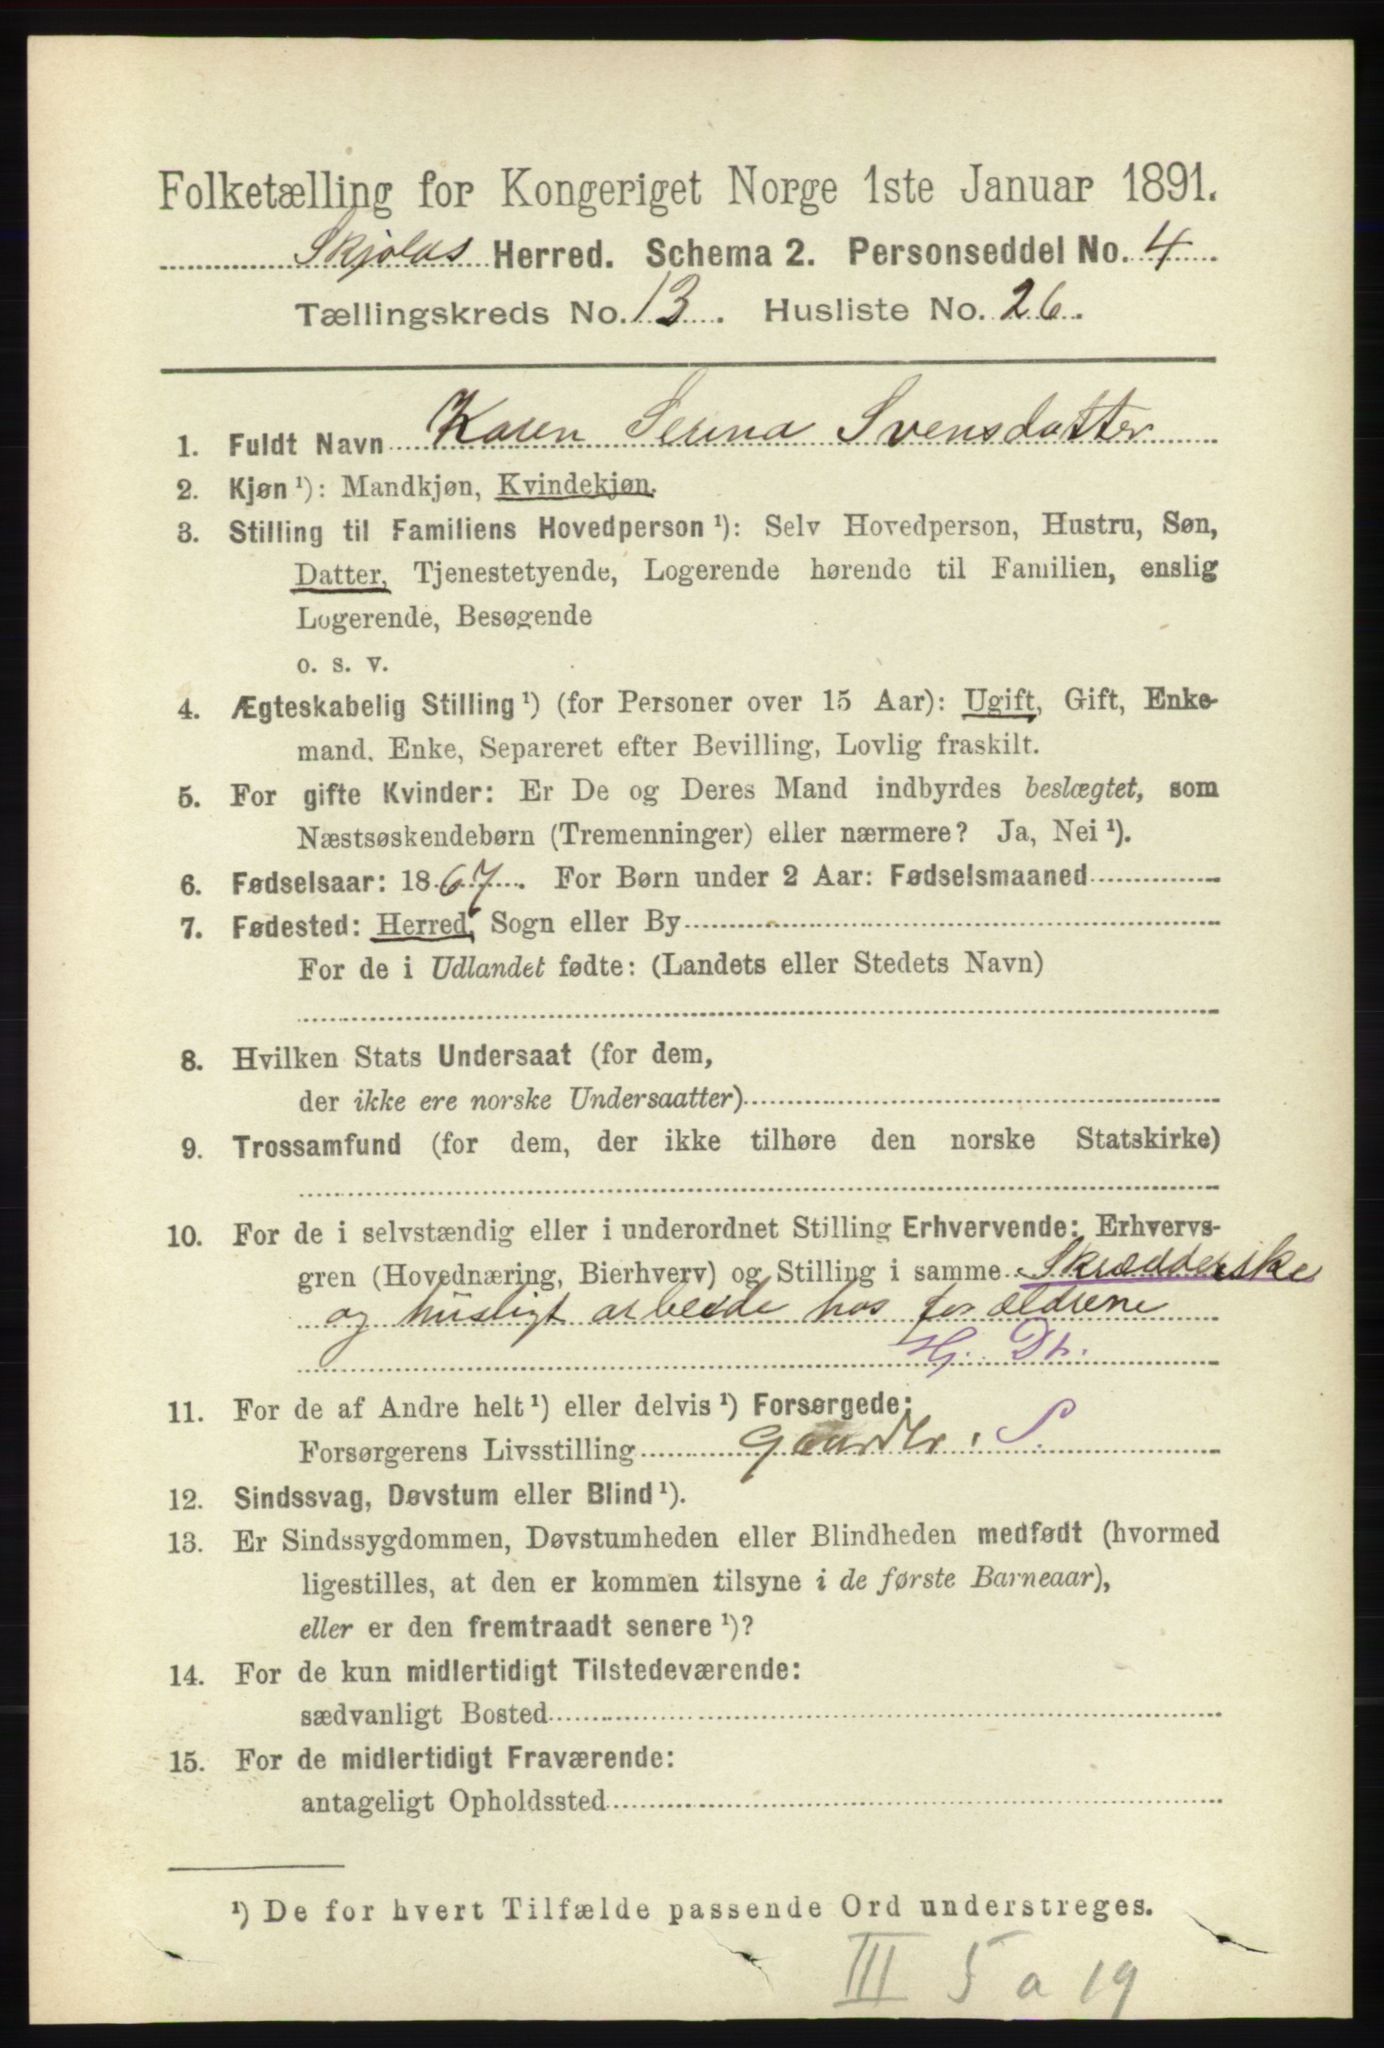 Folketælling for Kongeriget Norge 1ste Januar 1891.
Skjolds Herred. Schema 2. Personseddel No. 4.
Tællingskreds No. 13. Husliste No. 26.
1. Fuldt Navn Karen Serina Svensdatter
2. Kjøn ¹): Mandkjøn, Kvindekjøn.
3. Stilling til Familiens Hovedperson ¹): Selv Hovedperson, Hustru, Søn,
Datter, Tjenestetyende, Logerende hørende til Familien, enslig
Logerende, Besøgende
o. s. v.
4. Ægteskabelig Stilling ¹) (for Personer over 15 Aar): Ugift, Gift, Enke-
mand, Enke, Separeret efter Bevilling, Lovlig fraskilt.
5. For gifte Kvinder: Er De og Deres Mand indbyrdes beslægtet, som
Næstsøskendebørn (Tremenninger) eller nærmere? Ja, Nei ¹).
6. Fødselsaar: 1867. For Børn under 2 Aar: Fødselsmaaned
7. Fødested: Herred, Sogn eller By
For de i Udlandet fødte: (Landets eller Stedets Navn)
8. Hvilken Stats Undersaat (for dem,
der ikke ere norske Undersaatter)
9. Trossamfund (for dem, der ikke tilhøre den norske Statskirke)
10. For de i selvstændig eller i underordnet Stilling Erhvervende: Erhvervs-
gren (Hovednæring, Bierhverv) og Stilling i samme Skrædderske
og husligt arbeide hos forældrene
Hj. Dt.
11. For de af Andre helt ¹) eller delvis ¹) Forsørgede:
Forsørgerens Livsstilling Gaardbr. S.
12. Sindssvag, Døvstum eller Blind ¹).
13. Er Sindssygdommen, Døvstumheden eller Blindheden medfødt (hvormed
ligestilles, at den er kommen tilsyne i de første Barneaar),
eller er den fremtraadt senere ¹)?
14. For de kun midlertidigt Tilstedeværende:
sædvanligt Bosted
15. For de midlertidigt Fraværende:
antageligt Opholdssted
¹) De for hvert Tilfælde passende Ord understreges.
III 5 a 19